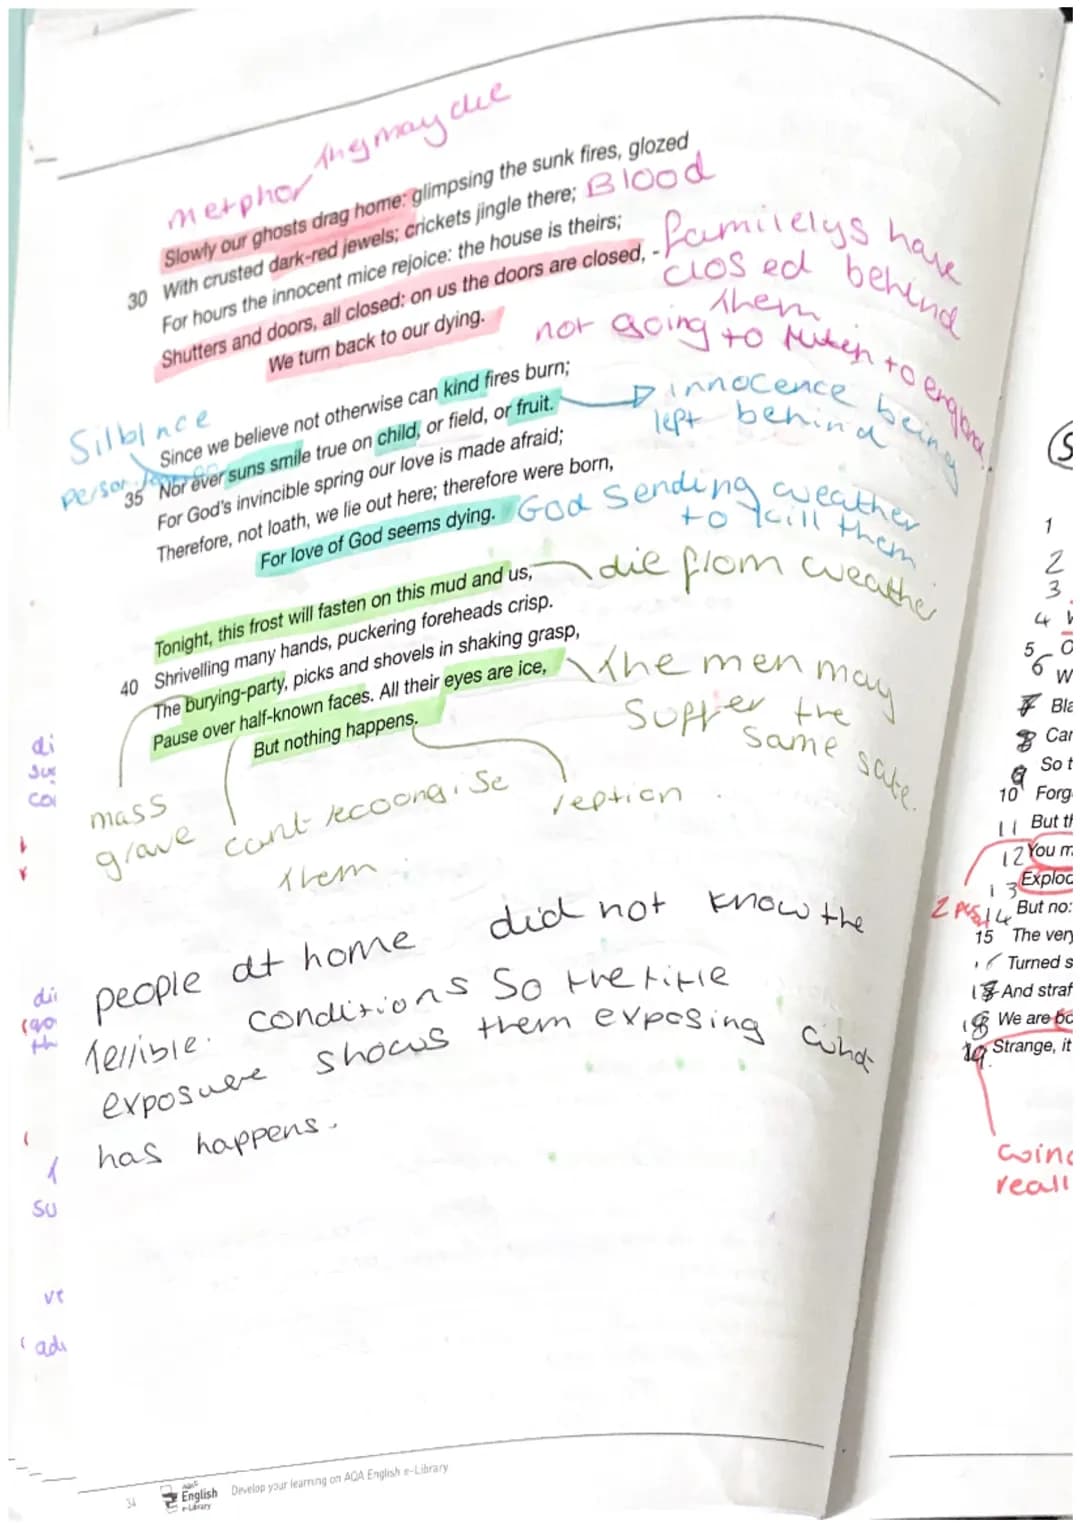 metphor they may die
Slowly our ghosts drag home: glimpsing the sunk fires, glozed
30 With crusted dark-red jewels; crickets jingle there; Blood
For hours the innocent mice rejoice: the house is theirs;
Shutters and doors, all closed: on us the doors are closed, -
We turn back to our dying.
familelys have
closed behind
them
not going to
to england
Since we believe not otherwise can kind fires burn;
35 Nor ever suns smile true on child, or field, or fruit.
For God's invincible spring our love is made afraid;
Therefore, not loath, we lie out here; therefore were born,
For love of God seems dying.
Silblnce
innocence being
left behind
God sending weather
to kill them
Tonight, this frost will fasten on this mud and us,
40 Shrivelling many hands, puckering foreheads crisp.
The burying-party, picks and shovels in shaking grasp,
Pause over half-known faces. All their eyes are ice,
But nothing happens.
die from weather
the men may
suffer the
same sate.
mass
grave
cant recoongise
them
reption
people at home did not know the
terrible conditions so the title
exposuere shows them exposing what
has happens.
34 AQA English e-Library Develop your learning on AQA English e-Library
di
sue
coi
dii
(go
th
su
ve
adi
1
2
3
4
5 O
6 W
7 Bla
8 Car
9 So t
10 Forg
11 But th
12 You m
13 Explod
14 But no:
15 The very
16 Turned s
17 And straf
18 We are bo
19 Strange, it
wind
reali